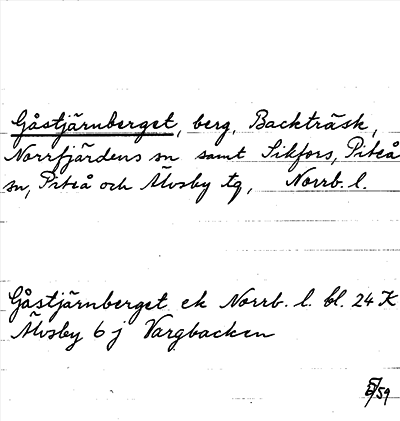 Gåstjärnberget, berg, Backträsk,
Norrfjärdens sn samt Sikfors, Piteå
sn, Piteå och Älvsby tg, Norrb. l.
Gåstjärnberget ek Norrb. l. bl. 24 K
Älvsby 6 j Vargbacken
/59